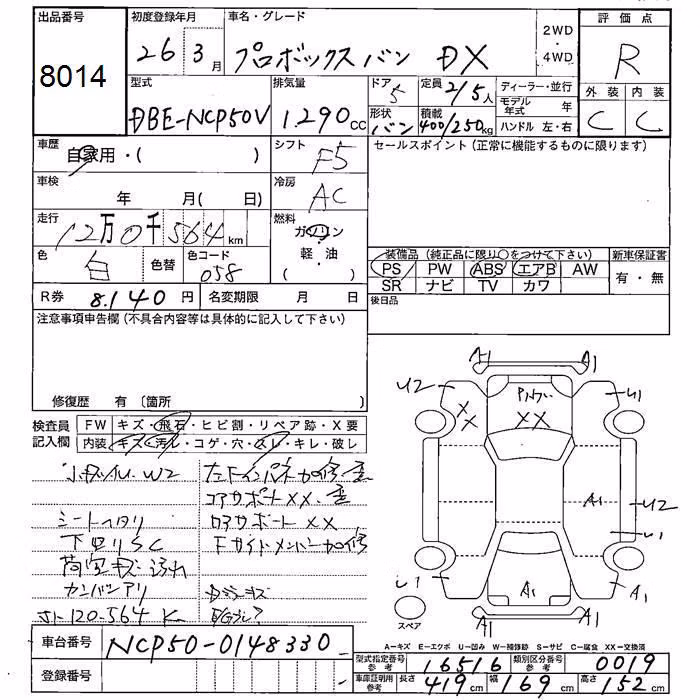 出品番号
8014
初度登録年月
26 3月
車名・グレード
プロボックスバン DX
2WD
・
4WD
評価点
R
外装 内装
C C
型式
DBE-NCP50V
排気量
1.290 CC
ドア
5
定員
2/5人
形状
バン
積載
400/250kg
ディーラー・並行
モデル年式 年
ハンドル 左・右
車歴
自家用・( )
シフト
F5
車検
年 月( 日)
冷房
AC
走行
12万0千564km
燃料
ガソリン
軽・油
( )
色
白
色替
色コード
058
R券 8.140円
名変期限 月 日
セールスポイント(正常に機能するものに限ります)
装備品(純正品に限り○をつけて下さい)
PS PW ABS エアB AW
SR ナビ TV カワ
新車保証書
有・無
後日品
注意事項申告欄(不具合内容等は具体的に記入して下さい)
修復歴 有(箇所 )
検査員
記入欄
FW キズ・飛石・ヒビ割・リペア跡・X要
内装 キズ・汚レ・コゲ・穴・スレ・キレ・破レ
小キズAU.W2
左Fインパネ加修歪
コアサポートXX.歪
シートヘタリ
ロアサポートXX
下回りSC
Fサイドメンバー加修
荷室キズ汚れ
カンバンアリ
120.564 K
A1 A1
U2 U1
XX
XX
A1
U2
U1
U1
A1
A1
A1 A1
スペア
A－キズ E－エクボ U－凹み W－補修跡 S－サビ C－腐食 XX－交換済
車台番号 NCP50-0148330
登録番号
型式指定番号
参考
16516
類別区分番号
参考
0019
車庫証明用
参考
長さ 419cm
幅 169cm
高さ 152cm